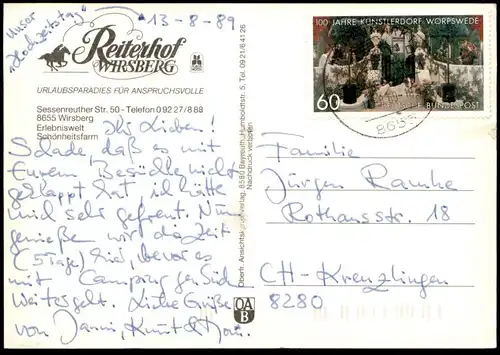 Unser
"Hochzeitstag"
13-8-89
Reiterhof
WIRSBERG
URLAUBSPARADIES FÜR ANSPRUCHSVOLLE
Sessenreuther Str. 50 - Telefon 0 92 27/8 88
8655 Wirsberg
Erlebniswelt
Schönheitsfarm
Ihr Lieben!
Schade, daß es mit
Eurem Besuch nicht
geklappt hat, ich hätte
mich sehr gefreut. Nun
genießen wir die Zeit
(5 Tage) hier, bevor es
mit Camping gen Süd
weitergeht. Liebe Grüße
von Janni, Kurt &
Oberfr. Ansichtskartenverlag, 8580 Bayreuth, Humboldtstr. 5, Tel. 09 21/6 41 26
Nachdruck verboten
OA
B
100 JAHRE KÜNSTLERDORF WORPSWEDE
60
DEUTSCHE BUNDESPOST
8655
Familie
Jürgen Ramke
Rothausstr. 18
CH-Kreuzlingen
8280